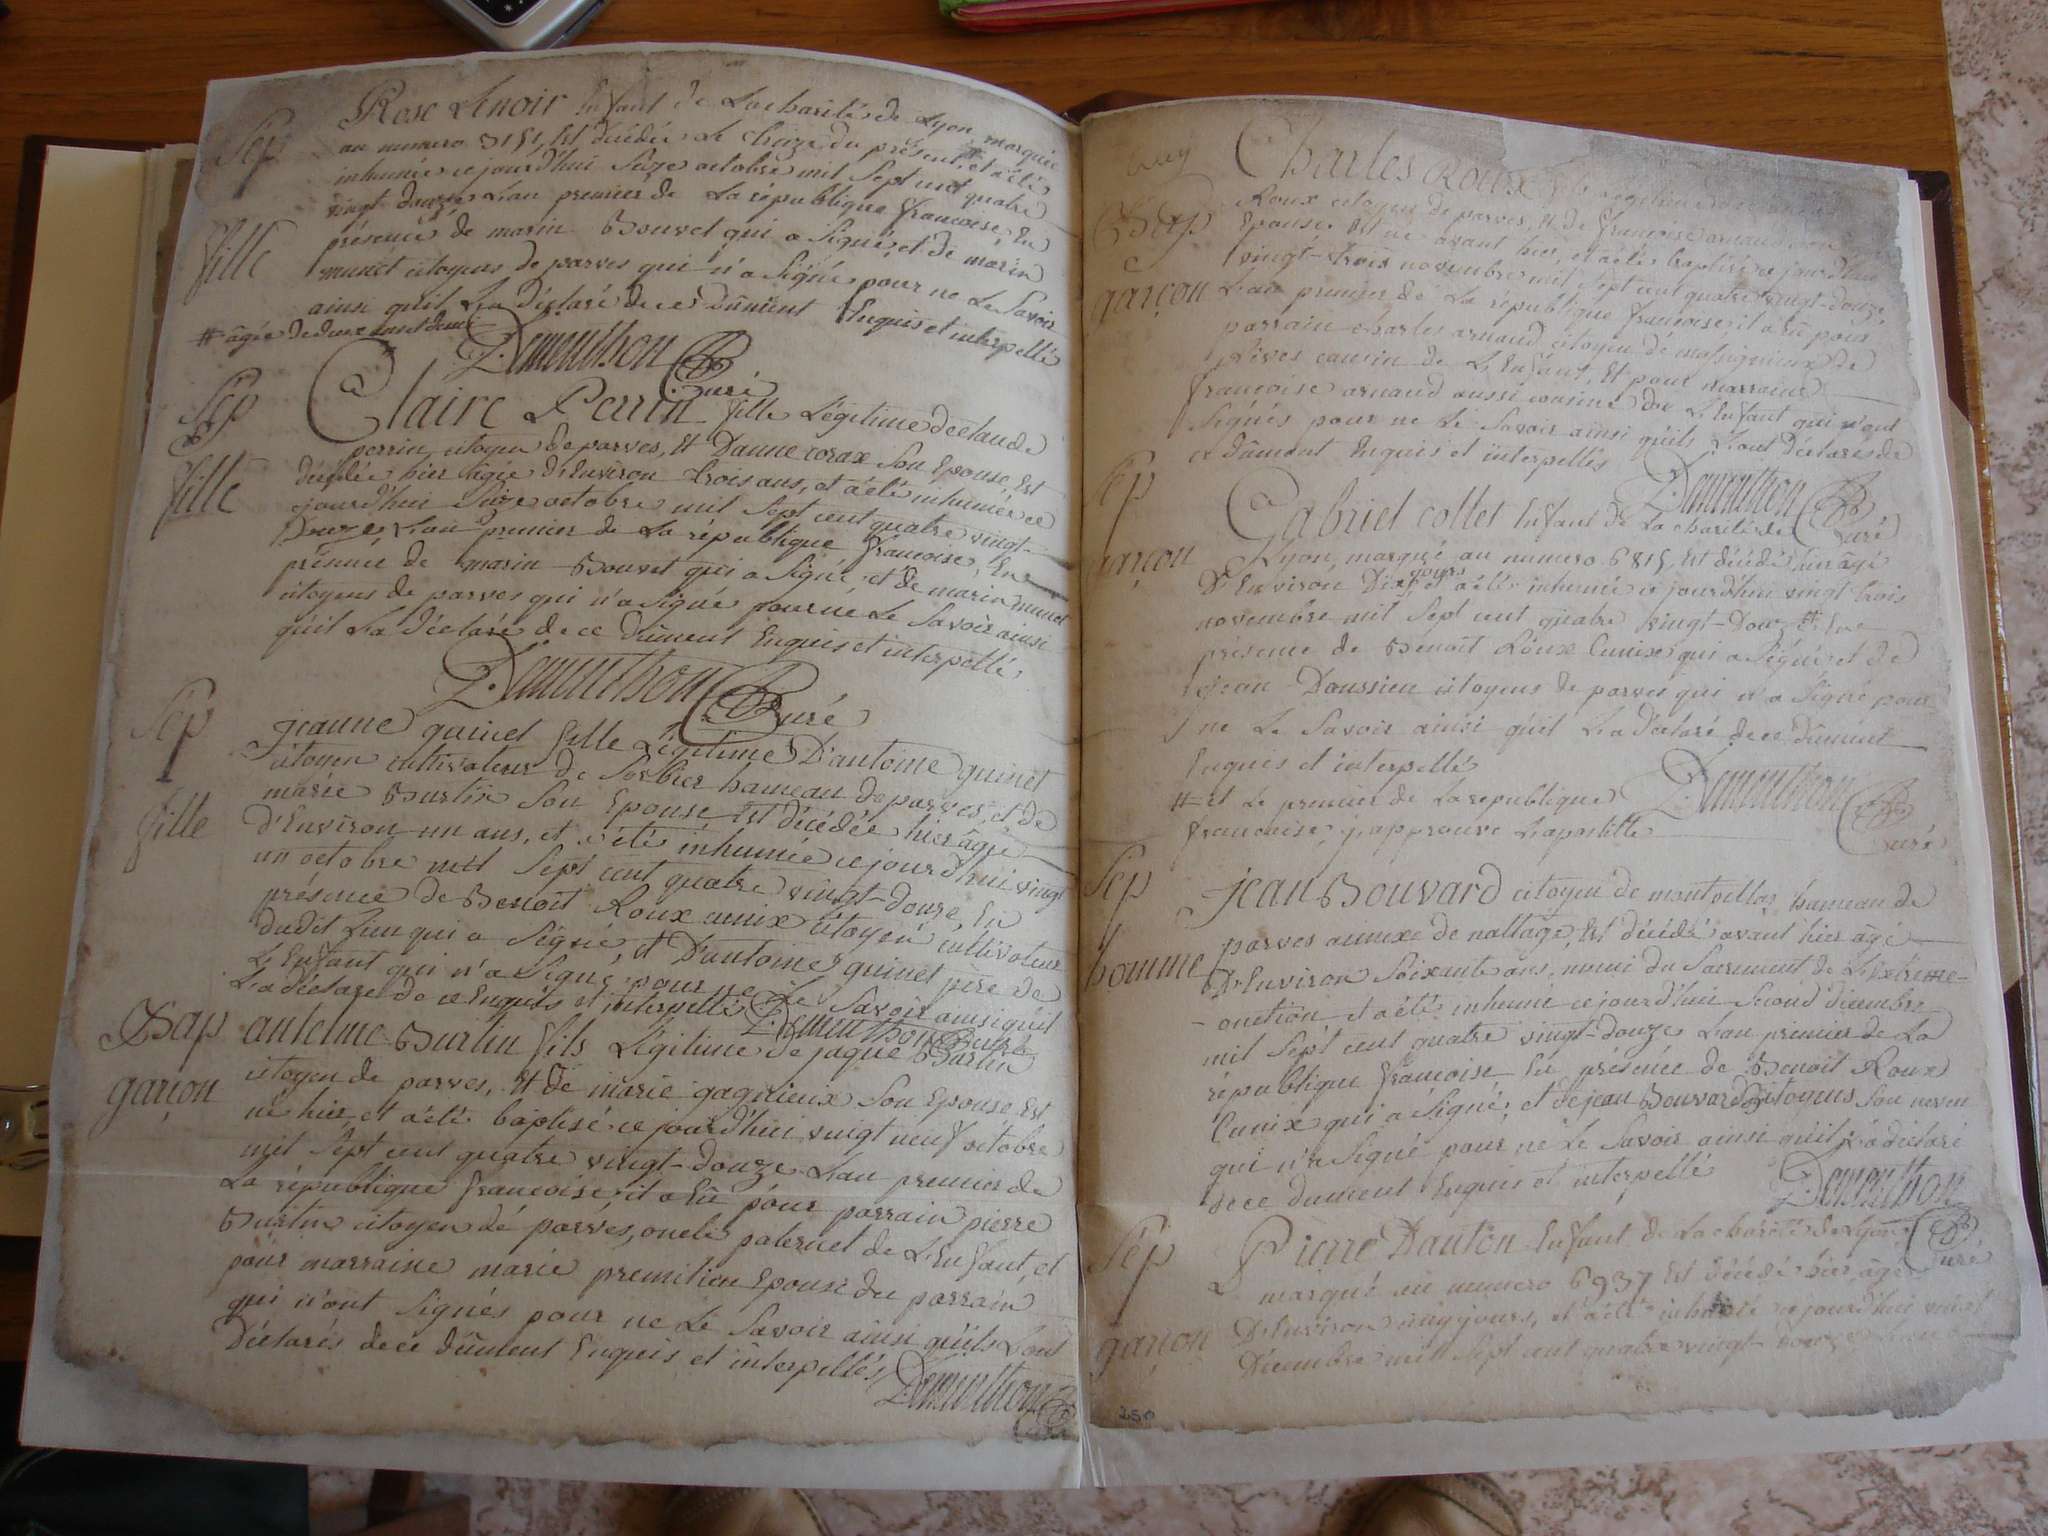 Sep
fille
Rose Lenoir Enfant de La charité de Lyon, marquée
au numero 5151, Est décédée Le du présent, et a été
inhumée ce jourd'hui Seize octobre mil Sept cent quatre
vingt douze L'an premier de La république francoise, En
présence de marin Bouvet qui a Signé, et de marin
munet citoyens de parves qui n'a Signé pour ne Le Savoir
ainsi qu'il La Déclaré de ce Dûment Enquis et interpellé
# âgée De deux ans
Dementhon Curé
Sep
fille
Claire Perrin fille Légitime de claude
perrin citoyen de parves, Et Danne corax Son Epouse Est
décédée hier âgée d'Environ trois ans, et a été inhumée ce
jourd'hui Seize octobre mil Sept cent quatre vingt-
Douze, L'an premier de La république francoise, En
présence de marin Bouvet qui a Signé et de marin munet
citoyens de parves qui n'a Signé pour ne Le Savoir ainsi
qu'il La Déclaré de ce Dûment Enquis et interpellé
Dementhon Curé
Sep
fille
jeanne guinet fille Légitime D'antoine guinet
citoyen cultivateur de Sorbier hameau de parves, et de
marie Burtin Son Epouse Est décédée hier âgée
d'Environ un ans, et a été inhumée ce jourd'hui vingt
un octobre mil Sept cent quatre vingt-douze, En
présence de Benoît Roux cunix citoyen cultivateur
dudit Lieu qui a Signé, et D'antoine guinet père de
L'Enfant qui n'a Signé pour ne Le Savoir ainsi qu'il
La déclaré de ce Enquis et interpellé Dementhon Curé
Bap
garçon
antelme Burtin fils Légitime de jaque Burtin
citoyen de parves, Et de marie gagnieux Son Epouse Est
né hier, et a été baptisé ce jourd'hui vingt neuf octobre
mil Sept cent quatre vingt-douze L'an premier de
La république francoise; il a Eu pour parrain pierre
Burtin citoyen de parves, oncle paternel de L'Enfant, et
pour marraine marie premilieu Epouse du parrain,
qui n'ont Signés pour ne Le Savoir ainsi qu'ils L'ont
Déclarés de ce Dûment Enquis et interpellés
Dementhon Curé
Bap
garçon
Charles Roux fils Légitime de
Roux citoyen de parves, Et de francoise arnaud Son
Epouse Est né avant hier, et a été baptisé ce jourd'hui
vingt-trois novembre mil Sept cent quatre vingt-douze,
L'an premier de La république francoise; il a Eu pour
parrain charles arnaud citoyen de massignieux de
Rives cousin de L'Enfant, Et pour marraine
francoise arnaud aussi cousine de L'Enfant qui n'ont
Signés pour ne Le Savoir ainsi qu'ils L'ont Déclarés de
ce Dûment Enquis et interpellés
Dementhon Curé
Sep
garçon
Gabriel collet Enfant de La charité de
Lyon, marqué au numero 6815, Est décédé hier âgé
D'Environ Dix jours et a été inhumé ce jourd'hui vingt trois
novembre mil Sept cent quatre vingt-Douze # En
présence de Benoît Roux Cunix qui a Signé et de
jean Doussien citoyens de parves qui n'a Signé pour
ne Le Savoir ainsi qu'il La Déclaré de ce Dûment
Enquis et interpellé
# et Le premier de La republique
francoise, j'approuve L'apostille
Dementhon Curé
Sep
homme
jean Bouvard citoyen de montpellaz hameau de
parves annexe de nattage, Est décédé avant hier âgé
D'Environ Soixante ans, muni du Sacrement de L'Extreme-
-onction et a été inhumé ce jourd'hui Second décembre
mil Sept cent quatre vingt-douze L'an premier de La
république francoise En présence de Benoit Roux
Cunix qui a Signé, et de jean Bouvard citoyens Son neveu
qui n'a Signé pour ne Le Savoir ainsi qu'il La déclaré
de ce dument Enquis et interpellé
Dementhon Curé
Sep
garçon
Pierre Danton Enfant de La charité de Lyon,
marqué au numero 6937 Est décédé hier âgé
D'Environ cinq jours, et a été inhumé ce jourd'hui
Décembre mil Sept cent quatre vingt-douze
250